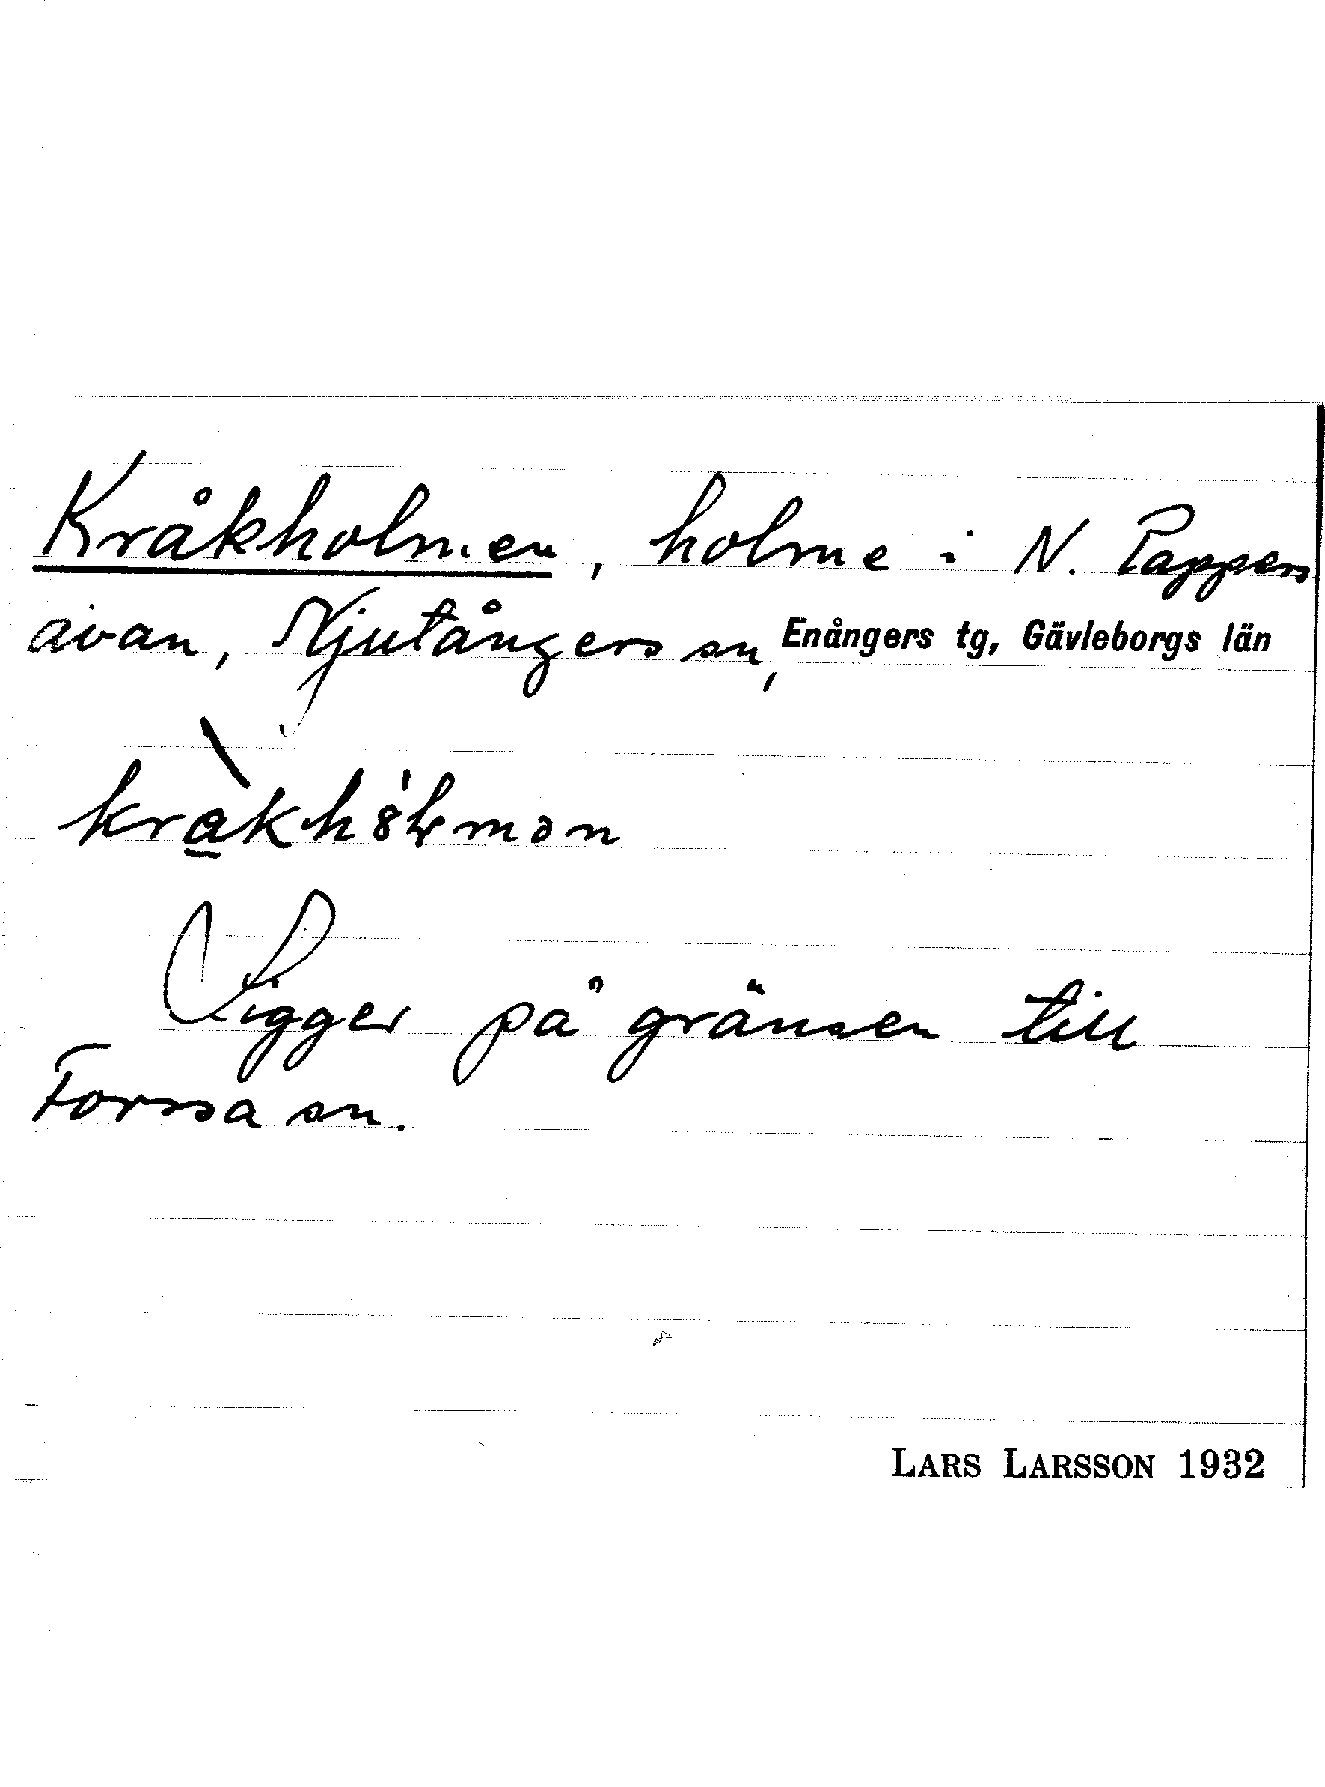 Kråkholmen, holme i N. Pappers
avan, Njutångers sn, Enångers tg, Gävleborgs län
Ligger på gränsen till
Forssa sn.
LARS LARSSON 1932